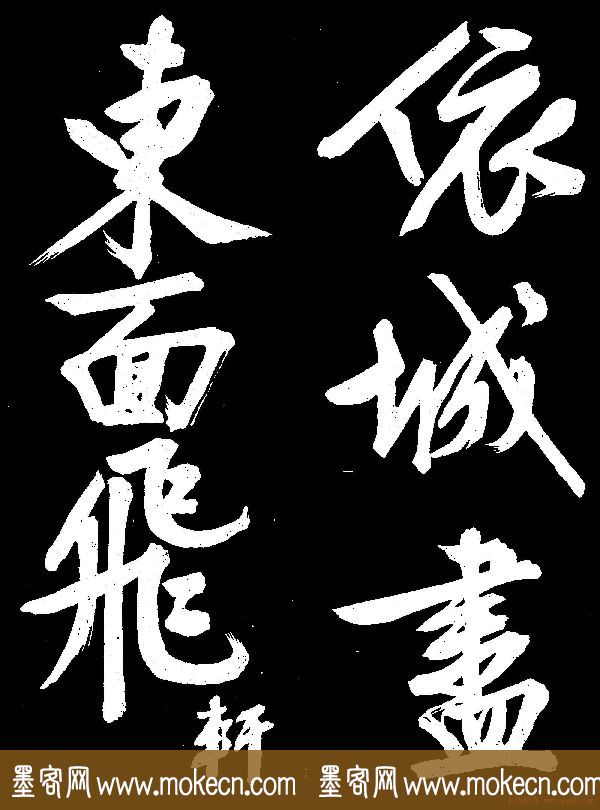 依城盡
東面飛
軒
墨客网 www.mokecn.com 墨客网 www.mokecn.com